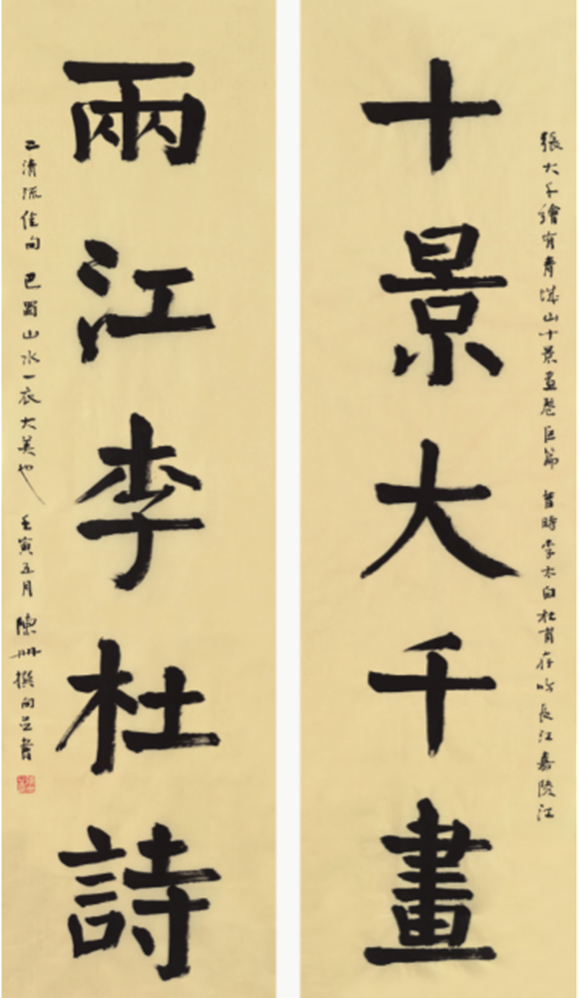 張大千繪有青城山十景畫卷巨篇 昔時李太白杜甫存吟長江嘉陵江
十景大千畫
兩江李杜詩
之清流佳句 巴蜀山水一衣大美也 壬寅五月 陳冊撰句並書